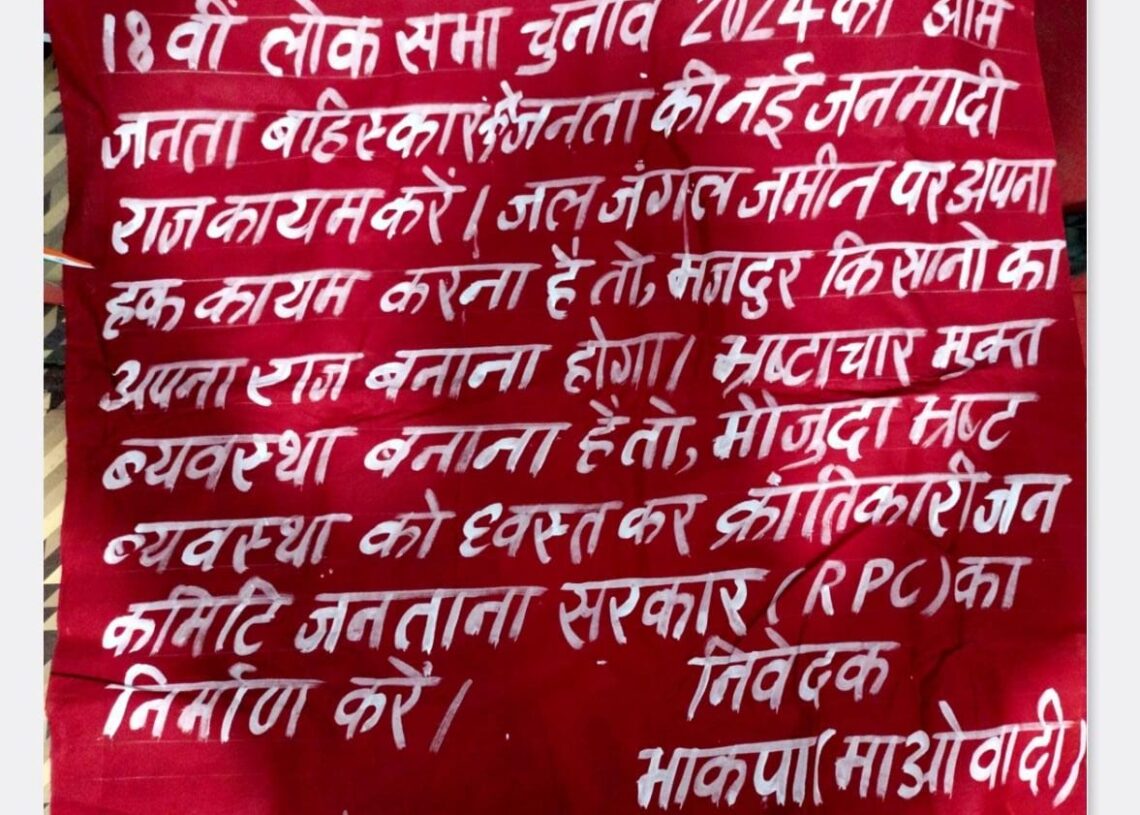 18 वीं लोक सभा चुनाव 2024 का आम
जनता बहिस्कार करे जनता की नई जनमादी
राज कायम करें। जल जंगल जमीन पर अपना
हक कायम करना है तो, मजदुर किसानो का
अपना राज बनाना होगा। भ्रष्टाचार मुक्त
ब्यवस्था बनाना है तो, मौजुदा भ्रष्ट
ब्यवस्था को ध्वस्त कर क्रांतिकारी जन
कमिटि जनताना सरकार (RPC) का
निर्माण करें।
निवेदक
भाकपा (माओवादी)